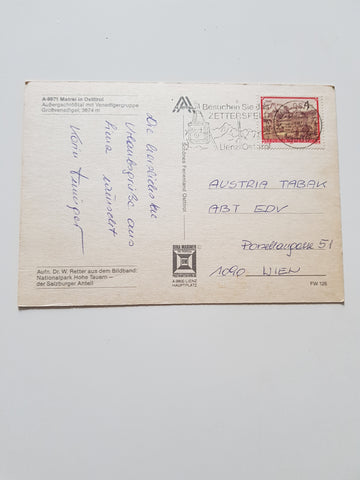 A-9971 Matrei in Osttirol
Außergschlößtal mit Venedigergruppe
Großvenediger, 3674 m
Die herzlichsten
Urlaubsgrüße aus
Lienz wünscht
Aufn. Dr. W. Retter aus dem Bildband:
Nationalpark Hohe Tauern –
der Salzburger Anteil
Schönes Ferienland Osttirol
Besuchen Sie das
ZETTERSFELD
Lienz/Osttirol
AUSTRIA TABAK
ABT EDV
Porzellangasse 51
1090 WIEN
A 9900 LIENZ
HAUPTPLATZ
FW 126